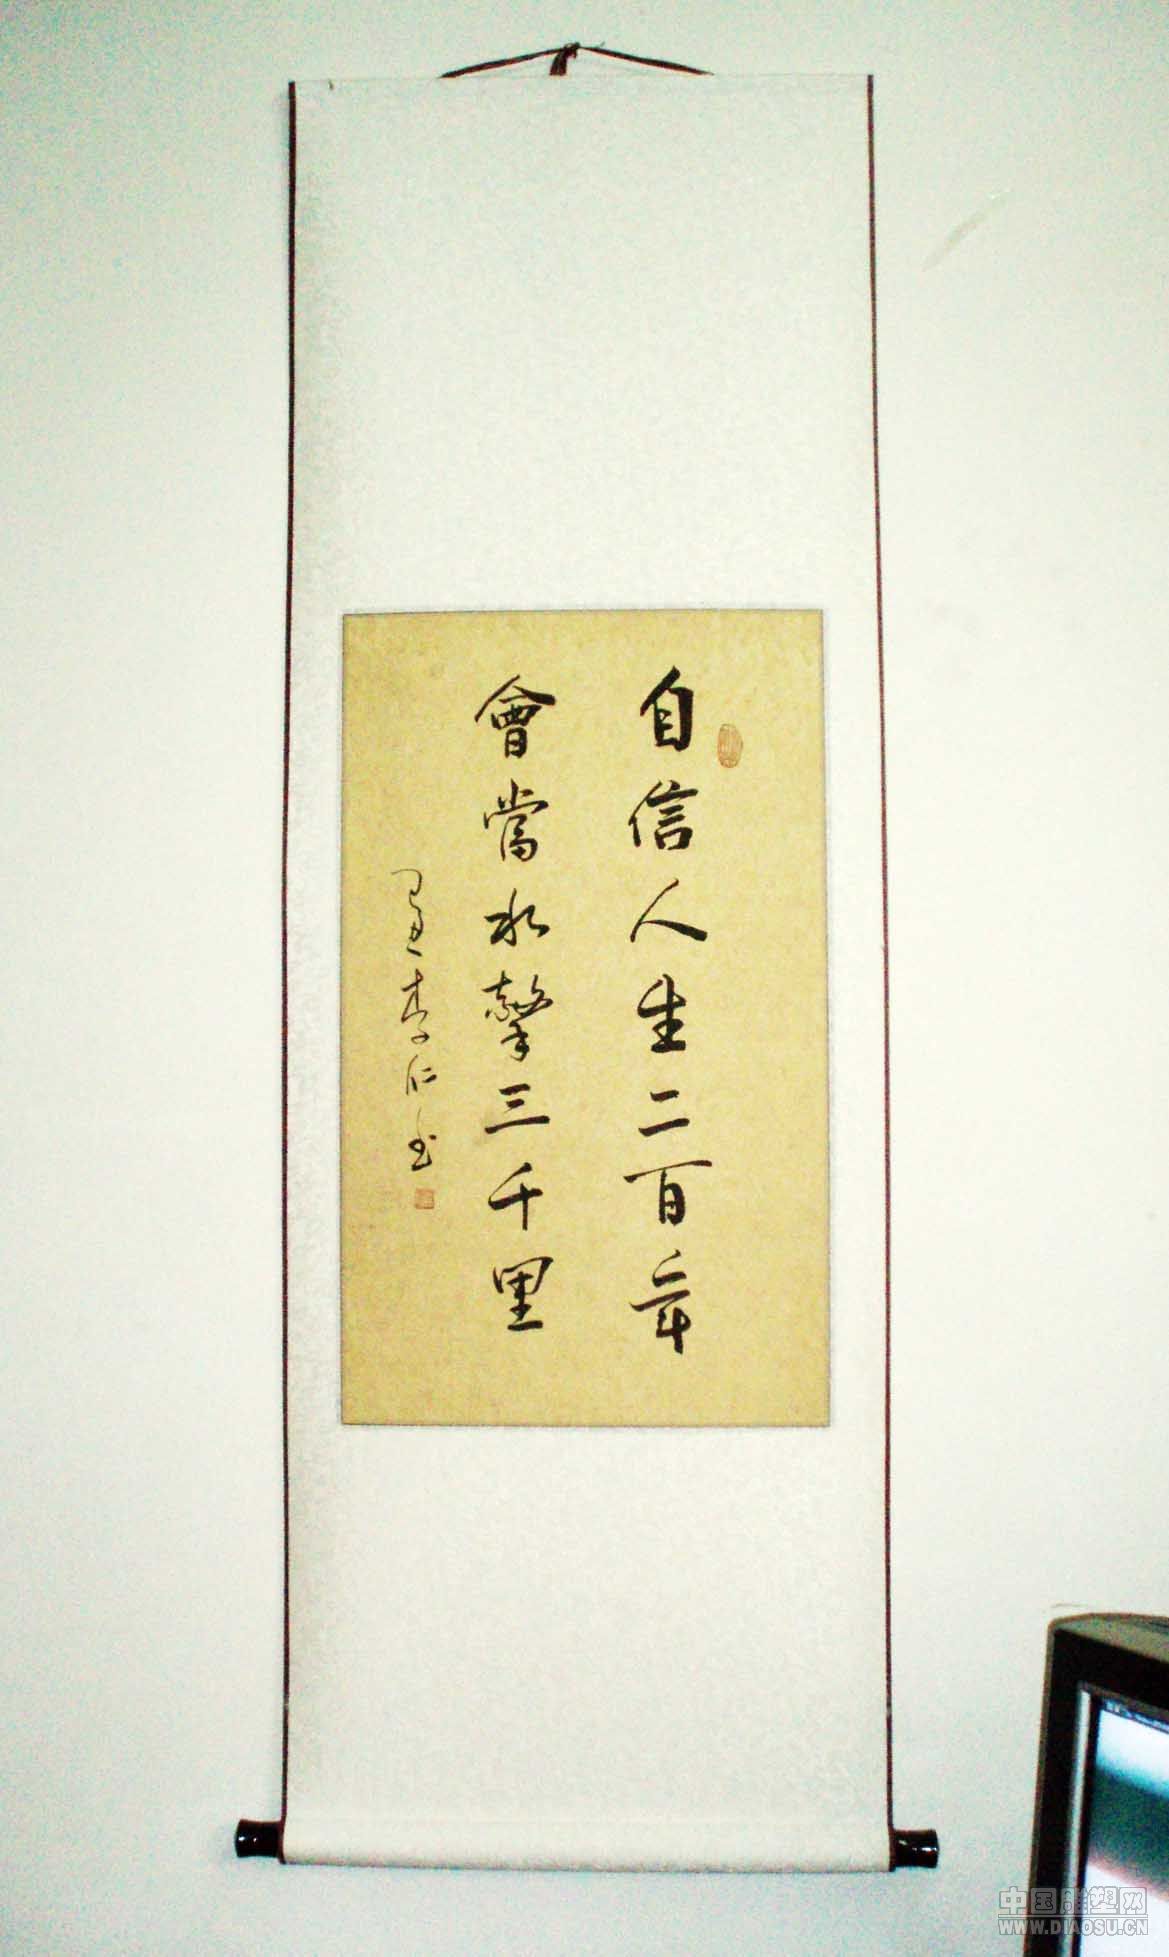 自信人生二百年
會當水擊三千里
李仁书
中国雕塑网
WWW.DIAOSU.CN